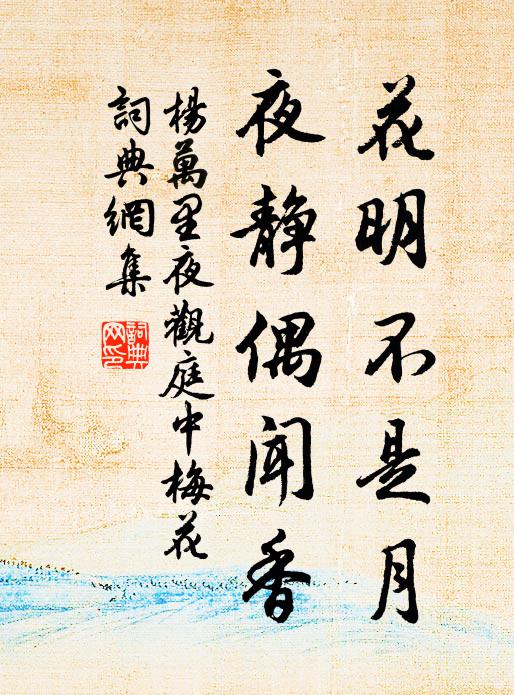 花明不是月
夜静偶闻香
楊萬里夜觀庭中梅花
詞典網集
詞典
网印